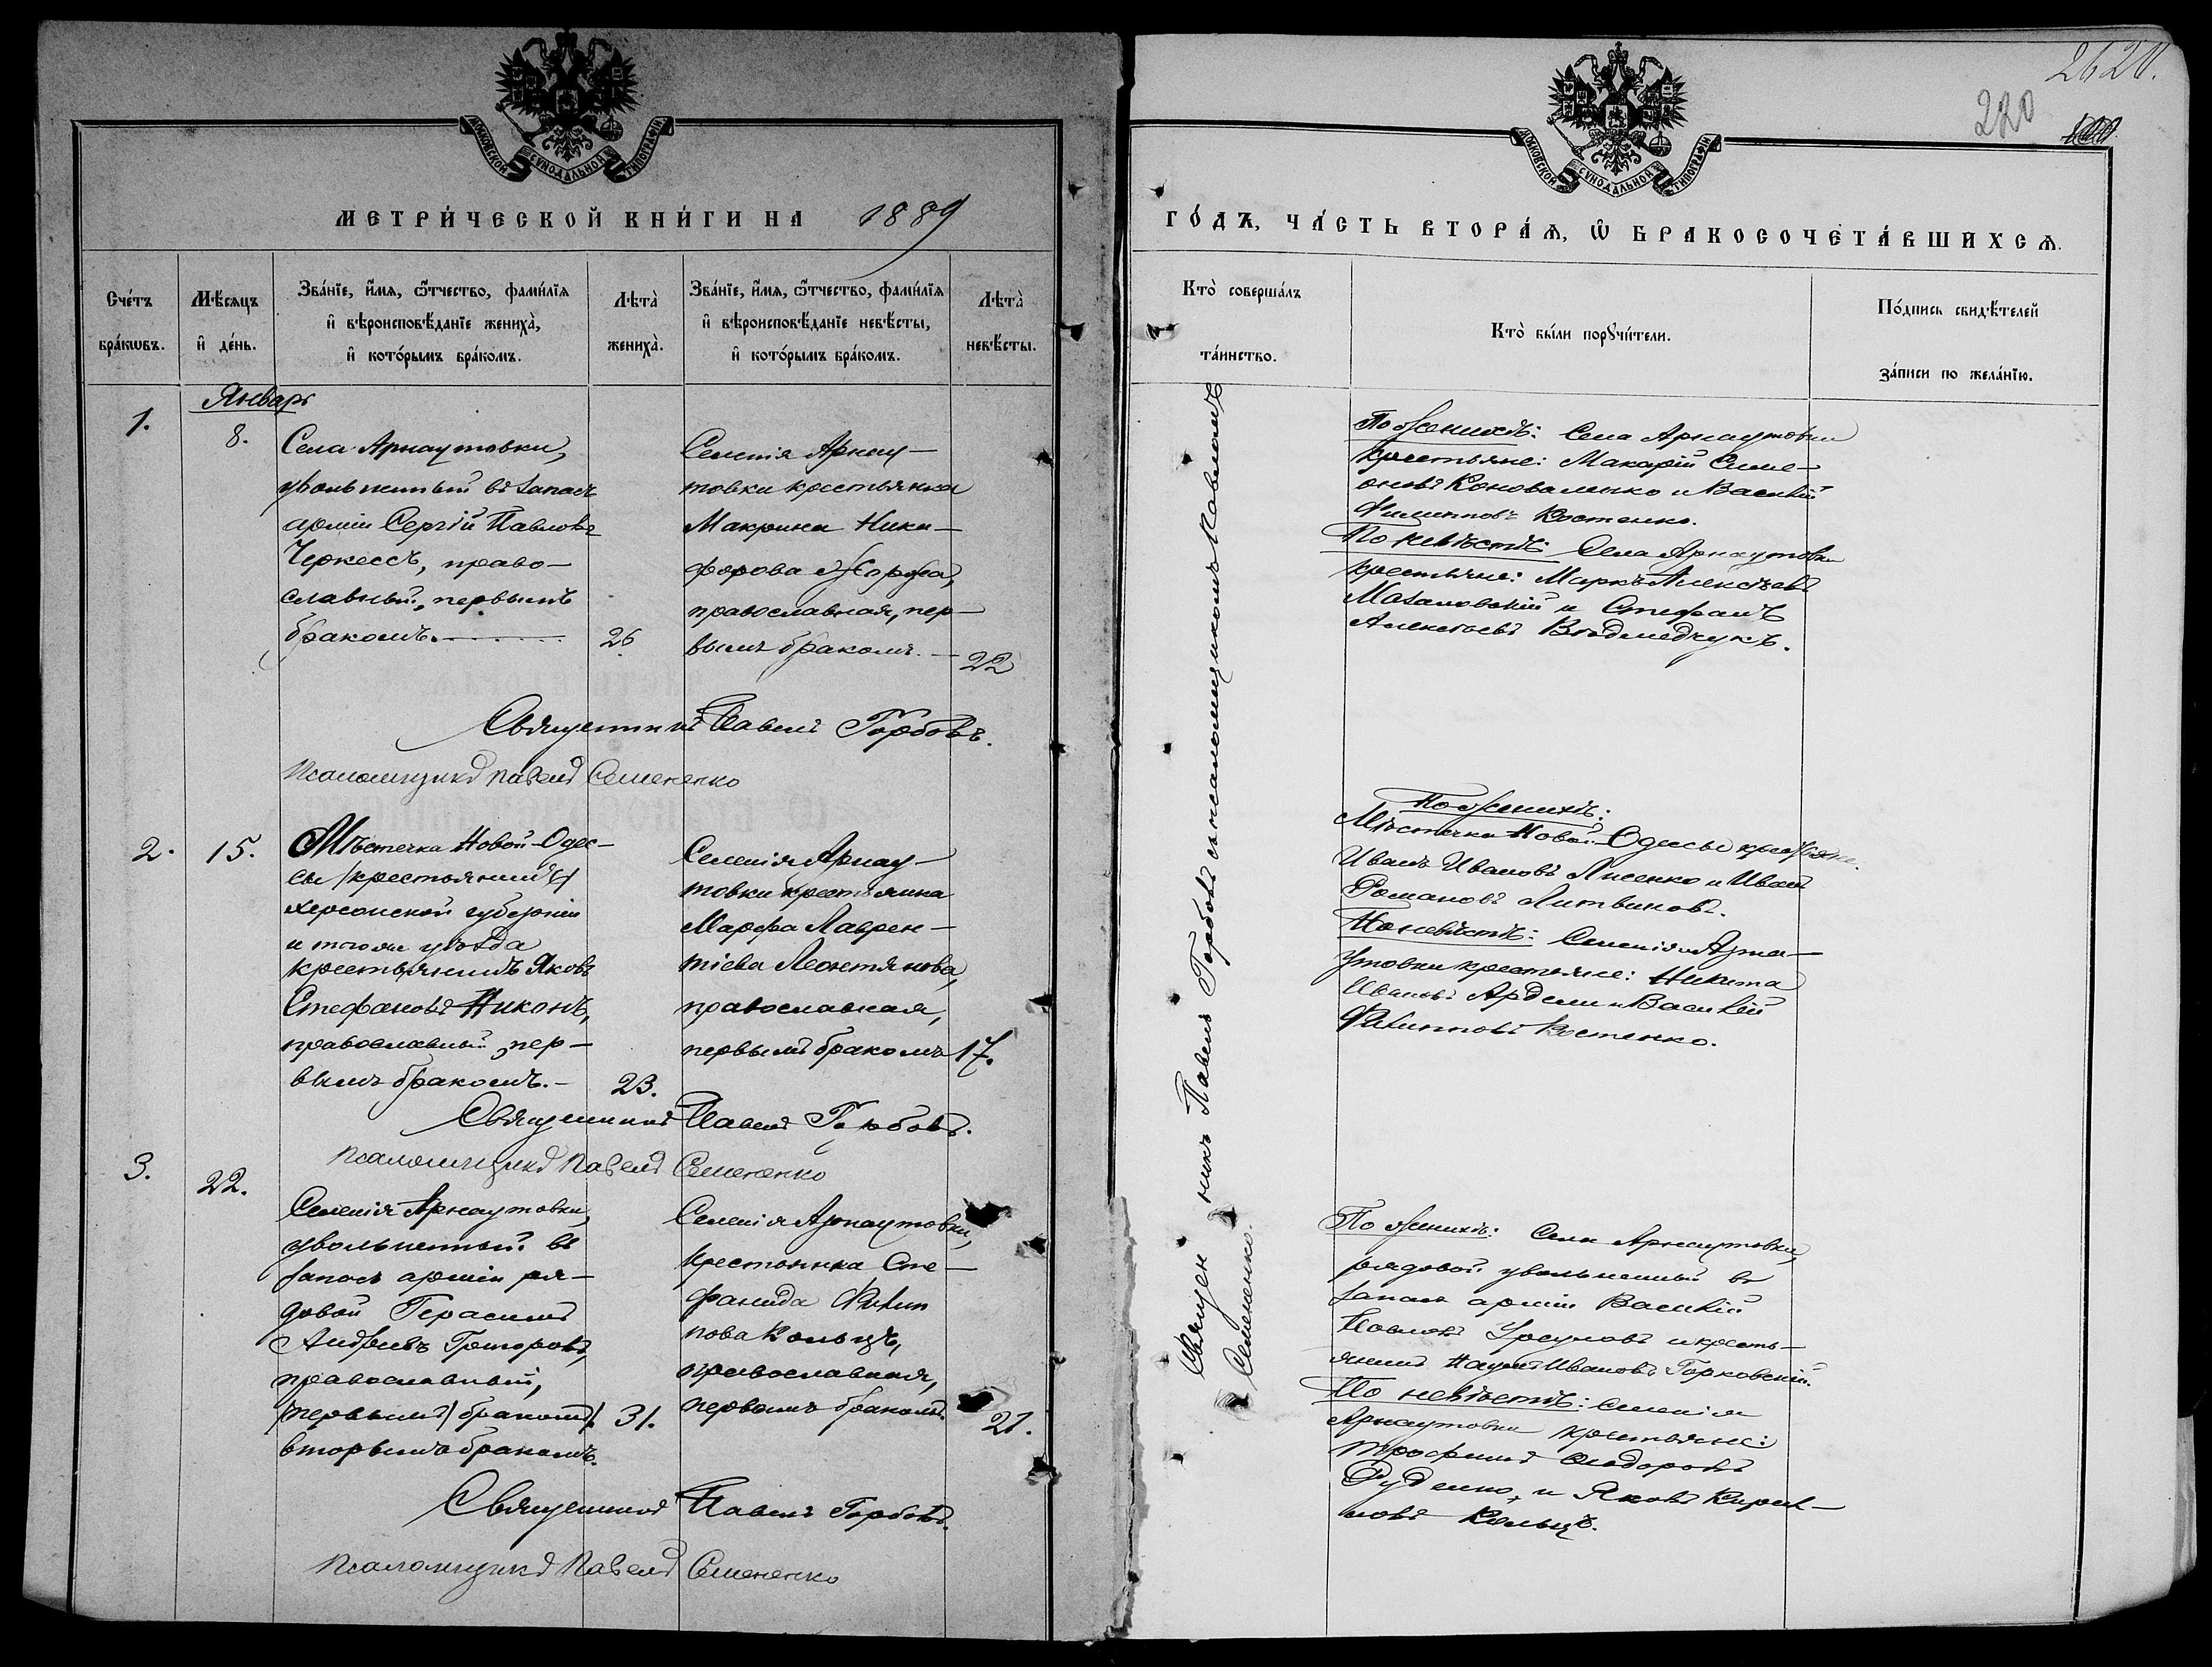 МОСКОВСКОЙ СУНОДАЛЬНОЙ ТИПОГРАФІИ
МЕТРИ́ЧЕСКОЙ КНИ́ГИ НА 1889
Сче́тъ бра́кѡвъ.
Мѣ́сяцъ и҆ де́нь.
Зва́нїе, и҆́мя, ѻ҆́тчество, фами́лїя
и҆ вѣроисповѣ́данїе жениха̀,
и҆ кото́рымъ бра́комъ.
Лѣта̀ жениха̀.
Зва́нїе, и҆́мя, ѻ҆́тчество, фами́лїя
и҆ вѣроисповѣ́данїе невѣ́сты,
и҆ кото́рымъ бра́комъ.
Лѣта̀ невѣ́сты.
Январь
1.
8.
Села Арнаутовки,
увольненный въ запасъ
арміи Сергій Павловъ
Черкессъ, право-
славный, первымъ
бракомъ.
26
Селенія Арнау-
товки крестьянка
Макрина Ники-
форова Жоржа,
православная, пер-
вымъ бракомъ.
22
Священникъ Павелъ Горбовъ.
Псаломщикъ Павелъ Семененко
2.
15.
Мѣстечка Новой-Одес-
сы /крестьянинъ/
Херсонской губерніи
и того же уѣзда
крестьянинъ Яковъ
Стефановъ Никонъ,
православный, пер-
вымъ бракомъ.
23.
Селенія Арнау-
товки крестьянка
Марфа Лаврен-
тіева Леонтянова,
православная,
первымъ бракомъ
17.
Священникъ Павелъ Горбовъ.
Псаломщикъ Павелъ Семененко
3.
22.
Селенія Арнаутовки,
увольненный въ
запасъ арміи ря-
довой Герасимъ
Андреевъ Григоровъ,
православный,
/первымъ/ бракомъ/
вторымъ бракомъ.
31.
Селенія Арнаутовки,
крестьянка Сте-
фанида Филип
пова Кольцъ,
православная,
первымъ бракомъ.
21.
Священникъ Павелъ Горбовъ.
Псаломщикъ Павелъ Семененко
2620.
220
МОСКОВСКОЙ СУНОДАЛЬНОЙ ТИПОГРАФІИ
ГО́ДЪ, ЧА́СТЬ ВТОРА́Ѧ, Ѡ҆ БРАКОСОЧЕТА́ВШИХСѦ.
Кто̀ соверша́лъ
та́инство.
Кто̀ бы́ли порꙋчи́тели.
По́дпись свидѣ́телей
за́писи по жела́нїю.
Священникъ Павелъ Горбовъ съ псаломщикомъ Павломъ
Семененко.
По женихѣ: Села Арнаутовки
крестьяне: Макарій Симе-
оновъ Коноваленко и Василій
Филипповъ Костенко.
По невѣстѣ: Села Арнаутовки
крестьяне: Маркъ Алексѣевъ
Мазановскій и Стефанъ
Алексѣевъ Вѣдмедчукъ.
По женихѣ:
Мѣстечка Новой-Одессы крестьяне
Иванъ Ивановъ Лисенко и Иванъ
Романовъ Литвиновъ.
По невѣстѣ: Селенія Арна-
утовки крестьяне: Никита
Ивановъ Ардели и Василій
Филипповъ Костенко.
По женихѣ: Села Арнаутовки,
рядовой увольненный въ
запасъ арміи Василій
Павловъ Урсуловъ и кресть-
янинъ Наумъ Ивановъ Горковскій.
По невѣстѣ: Селенія
Арнаутовки крестьяне:
Трофимъ Ѳеодоровъ
Руденко, и Яковъ Кирил-
ловъ Кольцъ.